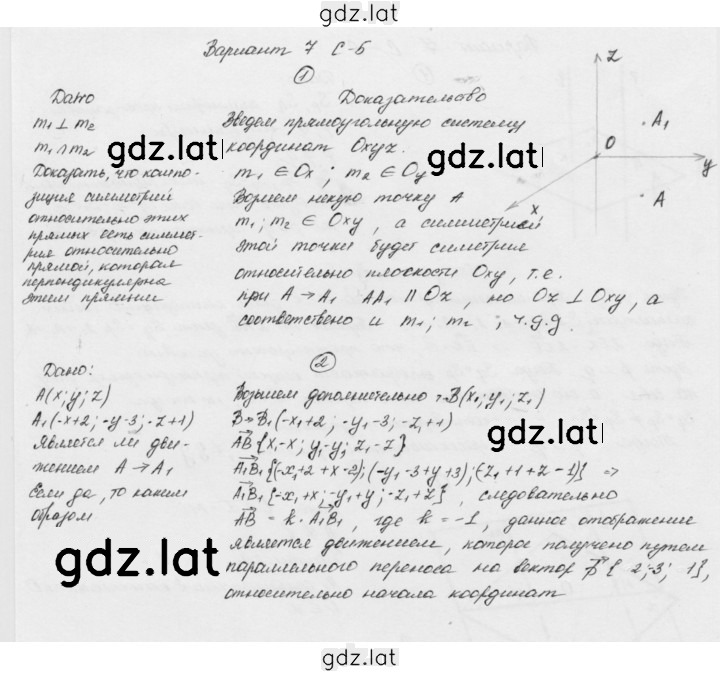 gdz.lat
Вариант 7 С-6
①
Дано
m₁ ⊥ m₂
m₁ ∩ m₂
Доказать, что компо-
зиция симметрий
относительно этих
прямых есть симмет-
рия относительно
прямой, которая
перпендикулярна
этим прямым
Доказательство
Введем прямоугольную систему
координат Oxyz.
m₁ ∈ Ox ; m₂ ∈ Oy
Возьмем некую точку A
m₁; m₂ ∈ Oxy, а симметрией
этой точки будет симетрия
относительно плоскости Oxy, т.е.
при A → A₁ AA₁ || Oz, но Oz ⊥ Oxy, а
соответствено и m₁; m₂ ; ч.д.д.
z
A₁
O
y
x
A
gdz.lat
gdz.lat
②
Дано:
A(x; y; z)
A₁(-x+2; -y-3; -z+1)
Является ли дви-
жением A → A₁
Если да, то каким
образом
Возьмем дополнительно т. B(x₁; y₁; z₁)
B → B₁(-x₁+2; -y₁-3; -z₁+1)
AB {x₁-x; y₁-y; z₁-z}
A₁B₁ {(-x₁+2+x-2); (-y₁-3+y+3); (-z₁+1+z-1)} =>
A₁B₁ {-x₁+x; -y₁+y; -z₁+z}, следовательно
AB = k · A₁B₁, где k = -1, данное отображение
является движением, которое получено путем
параллельного переноса на вектор p {2; -3; 1},
относительно начала координат
gdz.lat
gdz.lat
gdz.lat